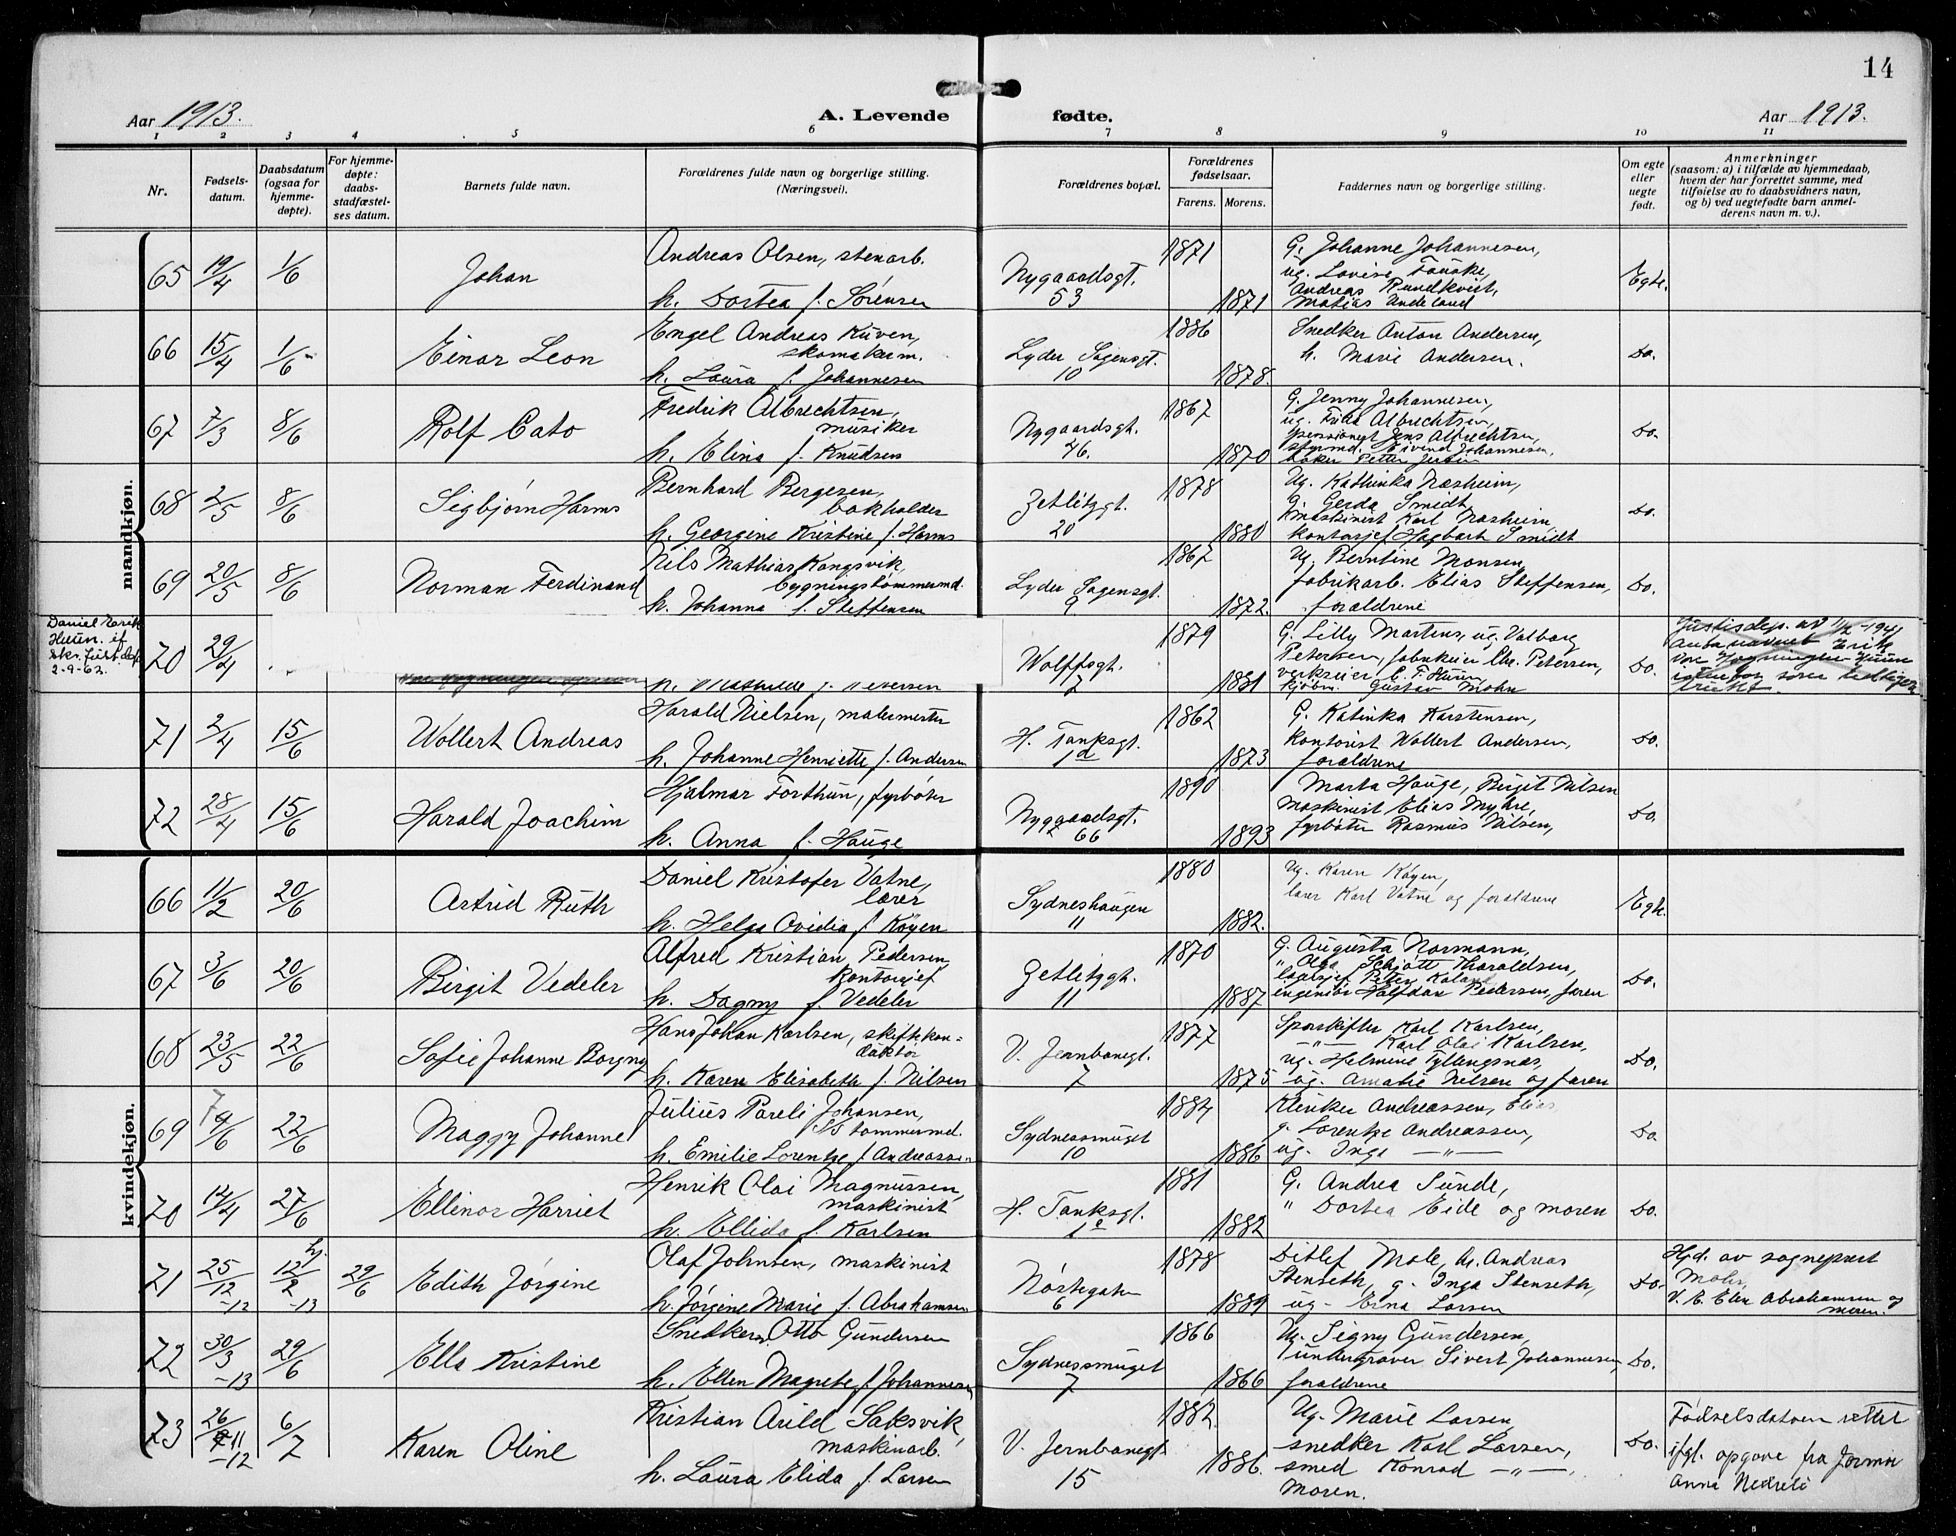 14
Aar 1913.
A. Levende fødte.
Aar 1913.
1 2 3 4 5 6 7 8 9 10 11
Nr.
Fødsels-
datum.
Daabsdatum
(ogsaa for
hjemme-
døpte).
For hjemme-
døpte:
daabs-
stadfæstel-
ses datum.
Barnets fulde navn.
Forældrenes fulde navn og borgerlige stilling.
(Næringsvei).
Forældrenes bopæl.
Forældrenes
fødselsaar.
Farens. Morens.
Faddernes navn og borgerlige stilling.
Om egte
eller
uegte
født.
Anmerkninger
(saasom: a) i tilfælde av hjemmedaab,
hvem der har forrettet samme, med
tilføielse av to daabsvidners navn,
og b) ved uegtefødte barn anmel-
derens navn m. v.).
mandkjøn.
65 19/4 1/6 Johan
Andreas Olsen, stenarb.
h. Dortea f. Sørensen
Nygaardsgt.
53
1871
1871
G. Johanne Johannesen,
ug. Lovise Fauske,
Andreas Rundkvist,
Matias Undeland
Egte.
66 15/4 1/6 Einar Leon
Engel Andreas Kuven,
skomakerm.
h. Laura f. Johannesen
Lyder Sagensgt.
10
1886
1878.
Snedker Anton Andersen,
h. Marie Andersen.
Do.
67 7/3 8/6 Rolf Cato
Fredrik Albrechtsen,
musiker
h. Elina f. Knudsen
Nygaardsgt.
46.
1867
1870
G. Jenny Johannesen,
ug. Frida Albrechtsen,
pensionert Jens Albrechtsen,
styrmd. Eivend Johannesen,
baker Petter
Do.
68 2/5 8/6 Sigbjørn Harms
Bernhard Bergesen,
bokholder
h. Georgine Kristine f. Harms
Zetlitzgt.
20
1878
1880
Ug. Kathinka Næsheim,
g. Gerda Smidt
maskinist Karl Næsheim
kontorsjef Hagbart Smidt
Do.
69 20/5 8/6 Norman Ferdinand
Nils Mathias Kongsvik,
bygningstømmermd.
h. Johanna f. Steffensen
Lyder Sagensgt.
9
1867
1872.
Ug. Berntine Monsen,
fabrikarb. Elias Steffensen,
forældrene
Do.
Daniel Erik
Huun. if
skr. Just.dep.
2-9-63.
70 29/4
h. Mathilde f. Petersen
Wolffsgt.
7
1879
1881
G. Lilly Martens, ug. Valborg
Petersen, fabrikeier Chr. Petersen,
verkseier C. F. Huun,
kjøbm. Gustav Mohn
Do.
Justisdep. av 1941
navnet Erik
71 2/4 15/6 Wollert Andreas
Harald Nielsen, malermester
h. Johanne Henriette f. Andersen
H. Tanksgt.
1d
1862
1873
G. Katinka Karstensen,
kontorist Wollert Andersen,
forældrene
Do.
72 28/4 15/6 Harald Joachim
Hjalmar Forthun, fyrbøter
h. Anna f. Hauge
Nygaardsgt.
66
1890
1893
Marta Hauge, Birgit Nilsen
maskinist Elias Myhre,
fyrbøter Rasmus Nilsen,
Do.
kvindekjøn.
66 11/2 20/6 Astrid Ruth
Daniel Kristofer Vatne,
lærer
h. Helga Ovidia f. Køyen
Sydneshaugen
11
1880
1882.
Ug. Karen Køyen,
lærer Karl Vatne og forældrene
Egte.
67 3/6 20/6 Birgit Vedeler
Alfred Kristian Pedersen,
kontorsjef
h. Dagny f. Vedeler
Zetlitzgt.
11
1870
1887
G. Augusta Normann,
" Olga Schjøtt Tharaldsen,
Petter Kaland
ingeniør Halfdan Pedersen, faren
Do.
68 23/5 22/6 Sofie Johanne Borgny
Hans Johan Karlsen, skiftekon=
duktør
h. Karen Elisabeth f. Nilsen
V. Jernbanegt.
7
1877
1875
Sporskifter Karl Karlsen,
—"— Karl Olai Karlsen,
ug. Helmine Tyllengsnæs,
ug. Amalie Nilsen og faren
Do.
69 22/6 Maggy Johanne
Julius Pareli Johansen,
tømmermd.
h. Emilie Lorentze f. Andreassen
Sydnessmuget
10
1884
1886
Klinker Andreassen, Elias
g. Lorentze Andreassen,
ug. Inga —"—
Do.
70 12/4 27/6 Ellinor Harriet
Henrik Olai Magnussen,
maskinist
h. Ellida f. Karlsen
H. Tanksgt.
1e
1881
1882
G. Andrea Sunde,
" Dortea Eide og moren
Do.
71 25/12 -12 hj. 12/2 -13 29/6 Edith Jørgine
Olaf Johnsen, maskinist
h. Jørgine Marie f. Abrahamsen
Nøstegaten
6
1878
1889
Ditlef Mole, Andreas
Stenseth, g. Inga Stenseth,
ug. Erna Larsen
Do.
Hjd. av sogneprest
Mohr,
V. E. Elen Abrahamsen og
moren.
72 30/3 -13 29/6 Ella Kristine
Snedker Otto Gundersen
h. Ellen Magrete f. Johannesen
Sydnessmuget
7
1866
1866
Ug. Signy Gundersen,
Sivert Johannesen,
forældrene
Do.
73 26/11 -12 6/7 Karen Oline
Kristian Arild Saksvik,
maskinarb.
h. Laura Elida f. Larsen
V. Jernbanegt.
15
1882.
1886.
Ug. Marie Larsen
snedker Karl Larsen,
smed Konrad —"—,
moren.
Do.
Fødselsdatoen rettet
ifgl. opgave fra
Anna Nedreli